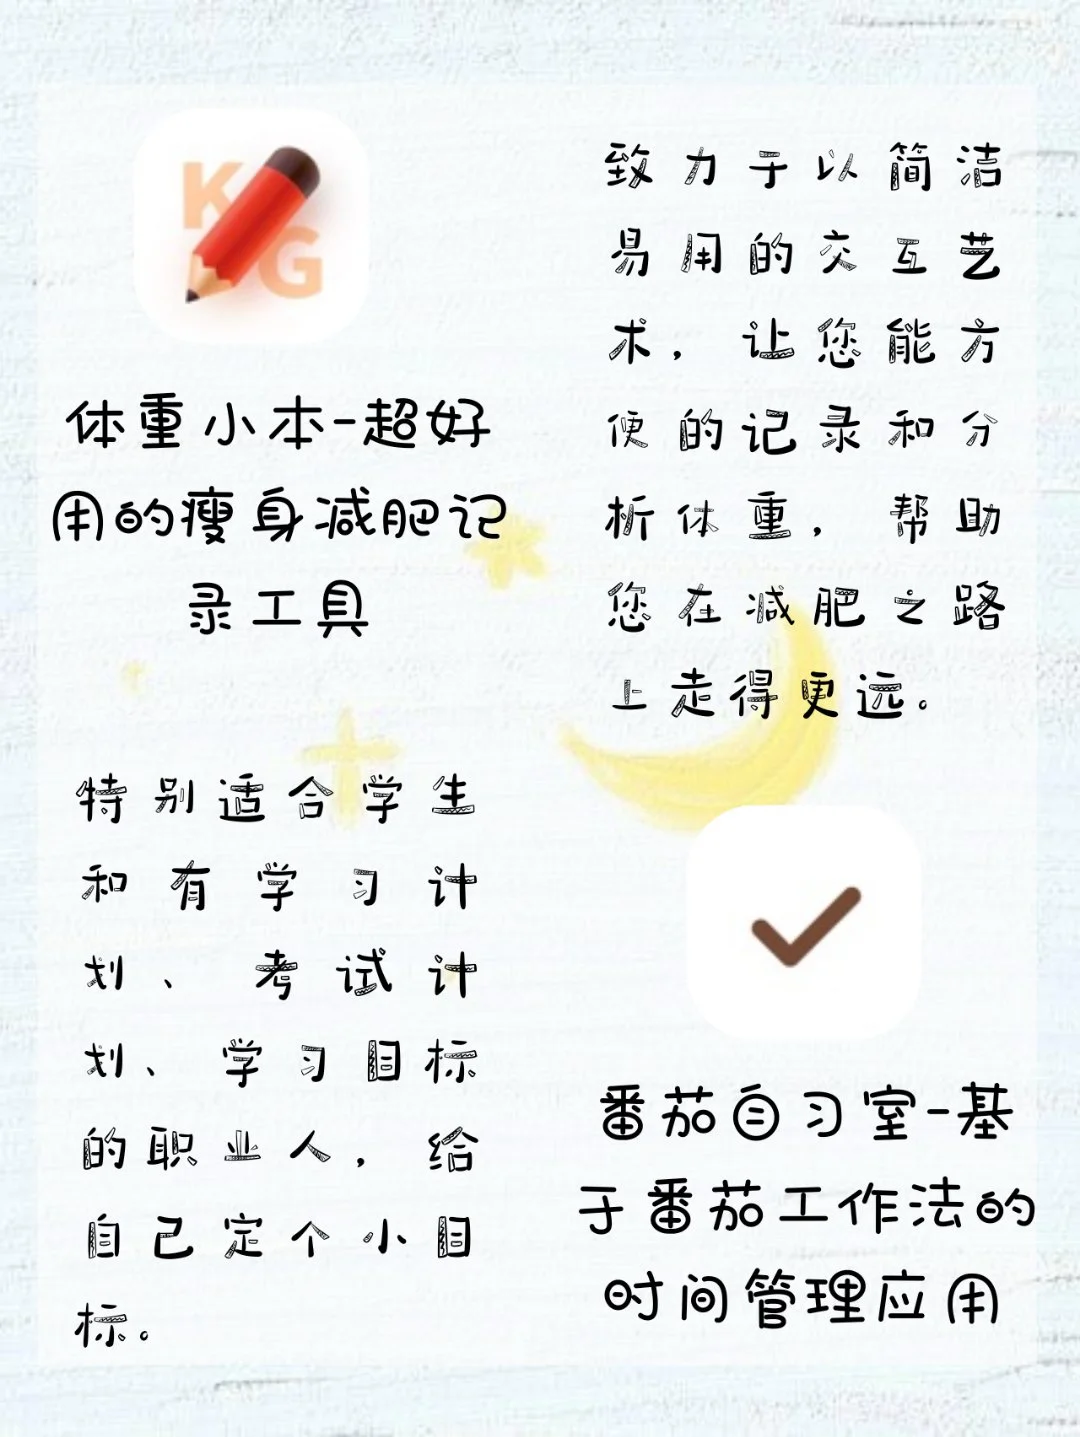 KG
体重小本-超好
用的瘦身减肥记
录工具
致力于以简洁
易用的交互艺
术，让您能方
便的记录和分
析体重，帮助
您在减肥之路
上走得更远。
特别适合学生
和有学习计
划、考试计
划、学习目标
的职业人，给
自己定个小目
标。
番茄自习室-基
于番茄工作法的
时间管理应用